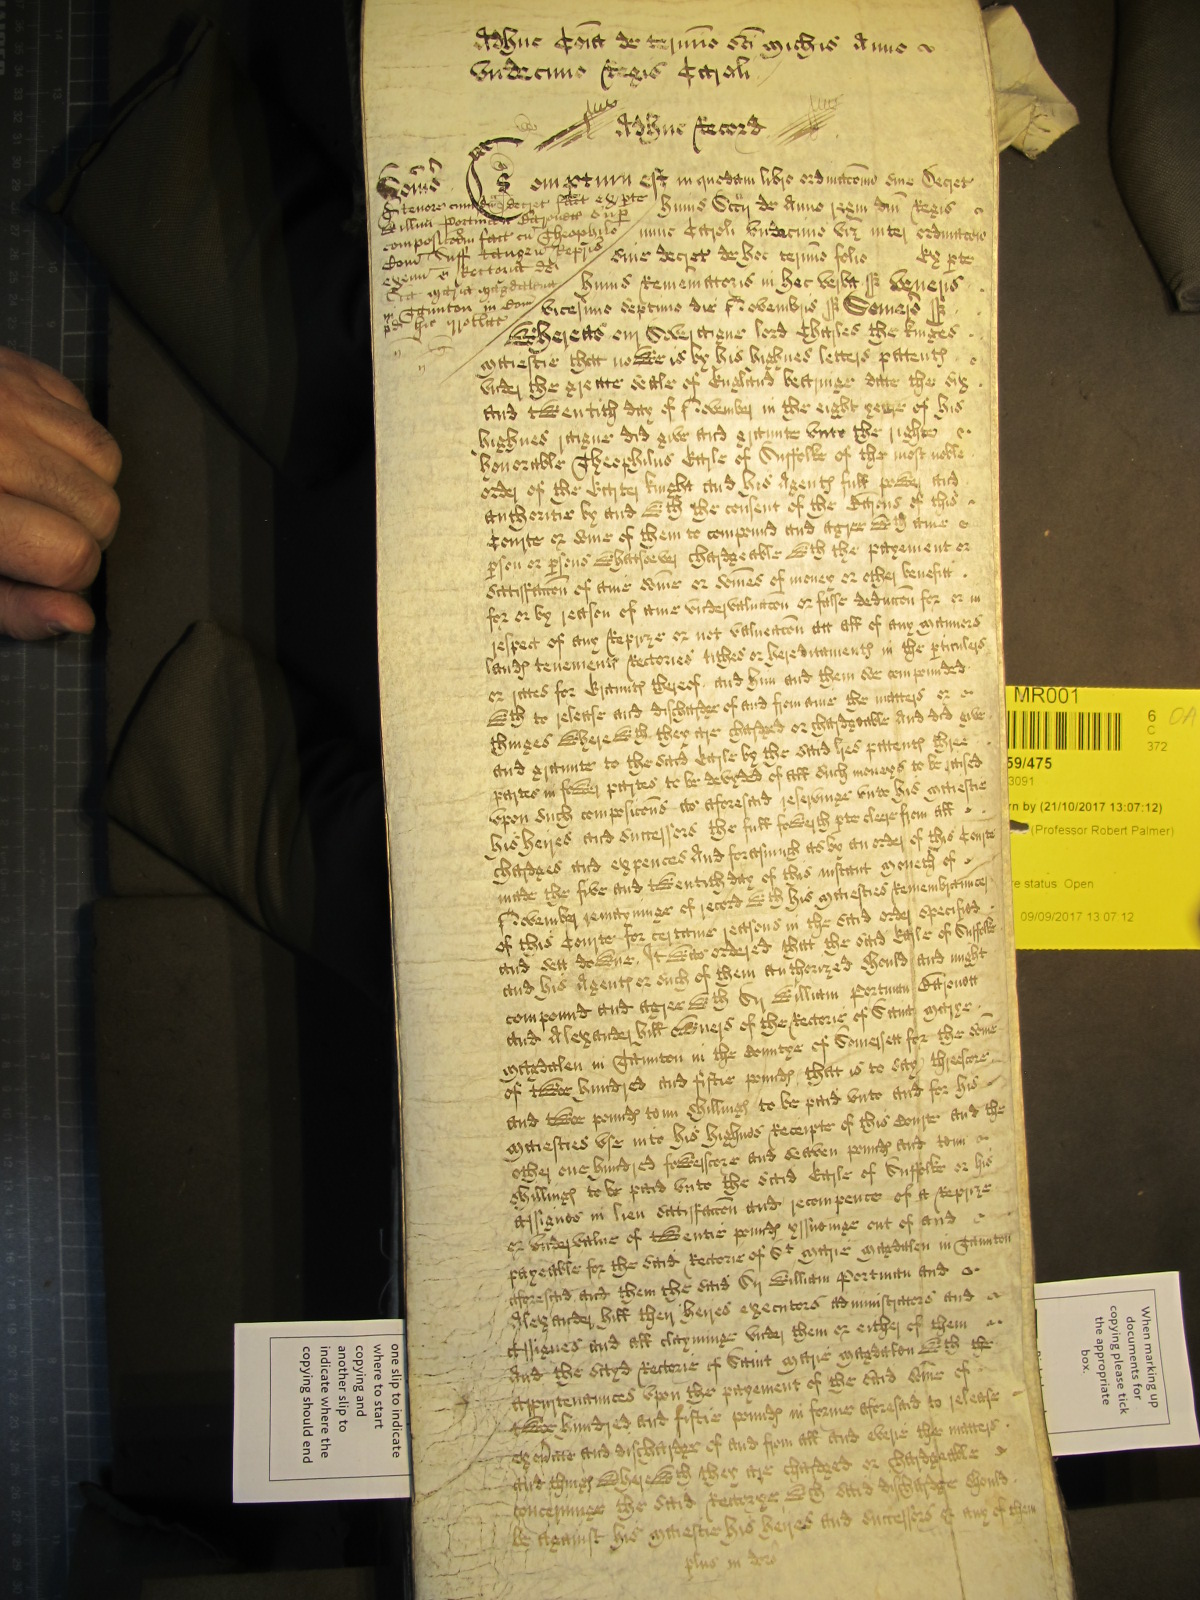 Adhuc Coia de termino sci Michis Anno
Undecimo Regis Caroli
Adhuc Record
Somrs
Compertum est in quodam libro ordinacionu sive Decret
huius Sccij de Anno regni dni Regis
nunc Caroli undecimo viz inter ordinaciones
sive decret de hoc termino folio Ex pte
huius Rememoratoris in hec verba ss Veneris
vicesimo septimo die Novembris ss Somers ss
Tenore cuiusdam decret fact ex pte
Willmi Portman Baronett sup
composicon fact cu Theophilo
Com Suff tangen Repris
exeun e Rectoria de
Sca Maria Magdalena
in Taunton in Com
pd hic irrotlat
Whereas our Soveraigne lord Charles the kinges
maiestie that nowe is by his highnes letters patents
under the greate seale of England bearinge date the six
and twentith day of November in the eight yeare of his
highnes raigne did give and graunte unto the right
honorable Theophilus Earle of Suffolke of the most noble
order of the Garter knight and his Agents full power and
authoritie by and with the consent of the Barons of this
Courte or some of them to compound and agree with anie
pson or psons whatsoever chardgeable with the payement or
satisfaccon of anie some or somes of money or other benefitt
for or by reason of anie undervaluacon or false deduccon for or in
respect of any Reprize or not valueacon att all of any mannors
lands tenements Rectories tithes or hereditaments in the pticulers
or rates for Graunts thereof. and him and them soe compounded
with to release and discharge of and from anie the matters or
thinges wherewith they are chardged or chardgeable And did give
and graunte to the said Earle by the said lres patents three
partes in fower partes to be devyded of all such moneys to be raised
upon such composicons as aforesaid reservinge unto his maiestie
his heires and successors the full fowerth pte cleere from all
chardges and expences And forasmuch as by an order of this Courte
made the five and twentith day of this instant moneth of
November remayninge of record with his maiesties Remembrancer
of this Courte for certaine reasons in the said order specified
and sett downe. It was ordered that the said Earle of Suffolke
and his Agents or such of them authorized should and might
compound and agree with Sr William Portman Baronett
and Alexander hill owners of the Rectorie of Saint Marye
Magdalen in Taunton in the Countye of Somersett for the some
of twoe hundred and fiftie pounds that is to say threescore
and twoe pounds tenn shillings to be paid unto and for his
Maiesties use into his highnes Receipte of this Courte and the
other one hundred fowerscore and seaven pounds and tenn
shillings to be paid unto the said Earle of Suffolke or his
Assignes in lieu satisfaccon and recompence of a Reprize
or undervalue of twentie pounds yssuinge out of and
payeable for the said Rectorie of St Marie Magdalen in Taunton
aforesaid and them the said Sr William Portman and
Alexander hill their heires executors administrators and
Assignes and all clayminge under them or either of them
And the sayd Rectorie of Saint Marie Magdalen with the
appurtenances upon the payement of the said some of
twoe hundred and fiftie pounds in forme aforesaid to release
exonerate and discharge of and from all and everie the matters
and things wherewith they are chardged or chardgeable
concerninge the said Rectorye wch said discharge should
be against his maiestie his heires and successors or any of them
plus in dorso
MR001
6
C
372
59/475
3091
rn by (21/10/2017 13:07:12)
(Professor Robert Palmer)
re status: Open
09/09/2017 13:07:12
one slip to indicate
where to start
copying and
another slip to
indicate where the
copying should end
When marking up
documents for
copying please tick
the appropriate
box.